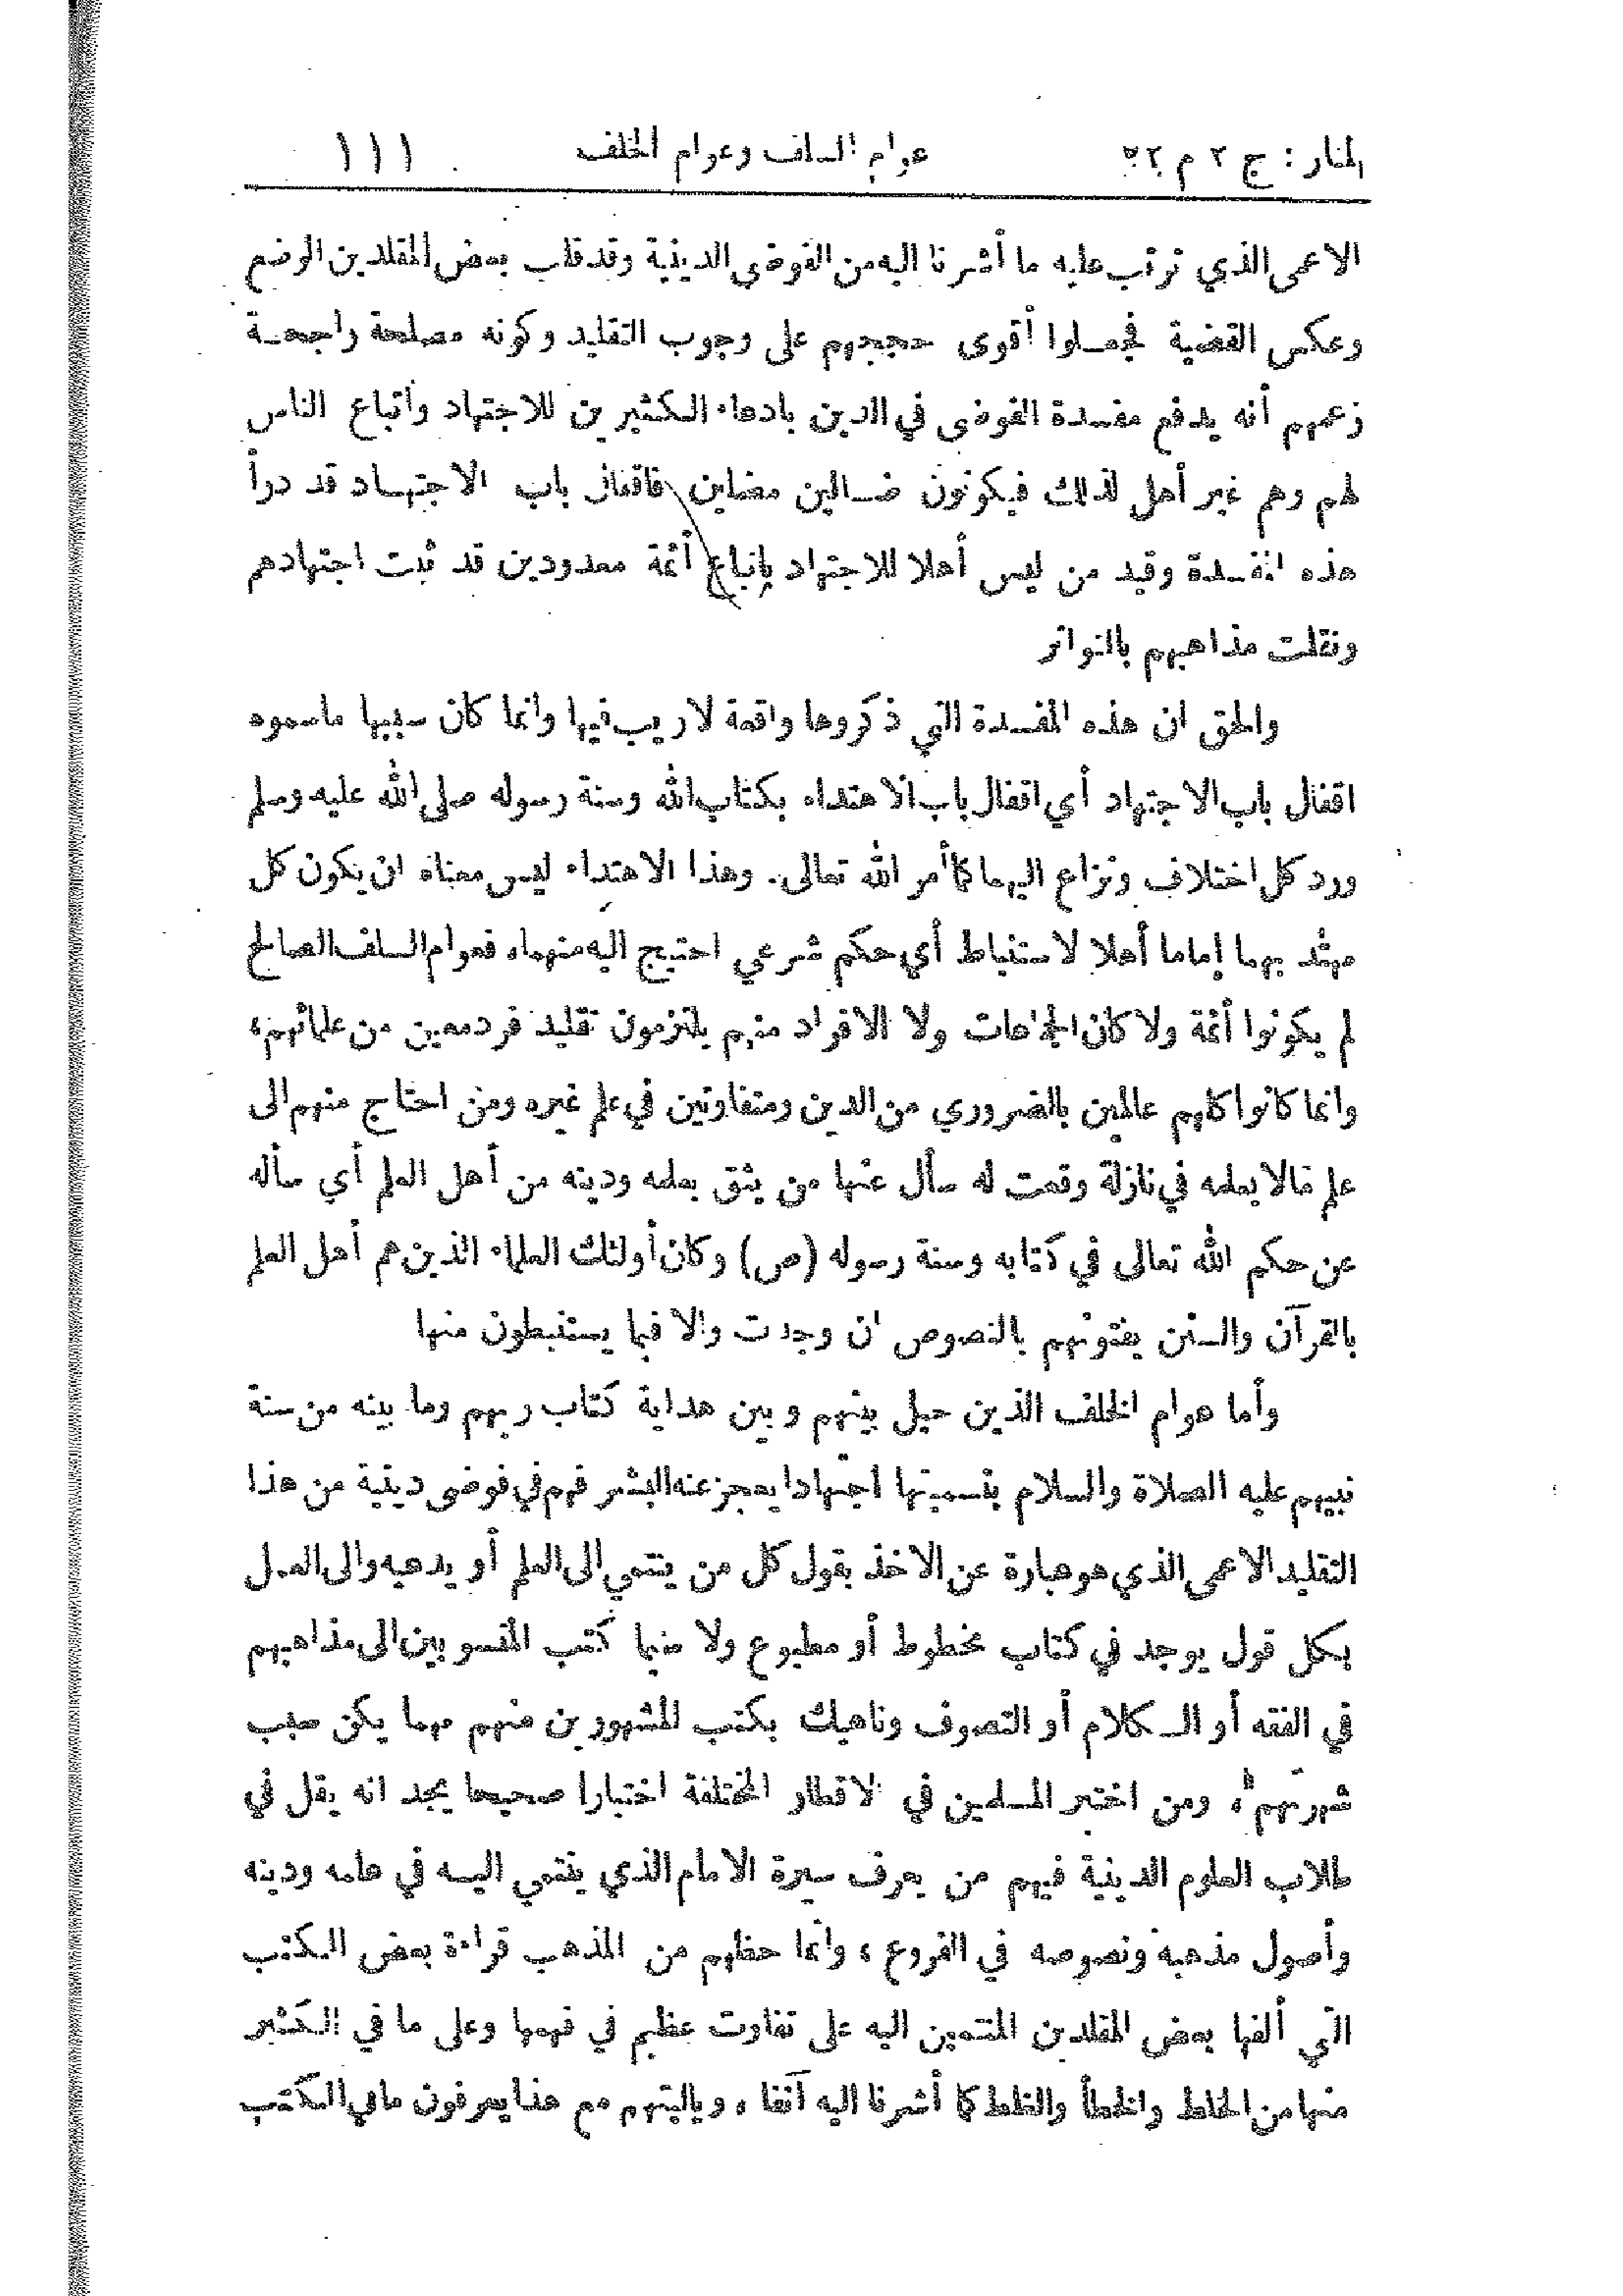 المنار : ج ٢ م ٢٢ عوام السلف وعوام الخلف ١١١
الاعمى الذي ترتب عليه ما أشرنا اليه من الفوضى الدينية وقد قلب بعض المقلدين الوضع
وعكس القضية فجعلوا أقوى حججهم على وجوب التقليد وكونه مصلحة راجحة
زعمهم أنه يدفع مفسدة الفوضى في الدين بادعاء الكثيرين للاجتهاد واتباع الناس
لهم وهم غير أهل لذلك فيكونون ضالين مضلين فاقفال باب الاجتهاد قد درأ
هذه المفسدة وقيد من ليس أهلا للاجتهاد باتباع أئمة معدودين قد ثبت اجتهادهم
ونقلت مذاهبهم بالتواتر
والحق ان هذه المفسدة التي ذكروها واقعة لا ريب فيها وانما كان سببها ماسموه
اقفال باب الاجتهاد أي اقفال باب الاهتداء بكتاب الله وسنة رسوله صلى الله عليه وسلم
ورد كل اختلاف ونزاع اليهما كما أمر الله تعالى. وهذا الاهتداء ليس معناه ان يكون كل
مهتد بهما إماما أهلا لاستنباط أي حكم شرعي احتيج اليه منهما، فعوام السلف الصالح
لم يكونوا أئمة ولا كان الجماعات ولا الافراد منهم يلتزمون تقليد فرد معين من علمائهم،
وانما كانوا كلهم عالمين بالضروري من الدين ومتفاوتين في علم غيره ومن احتاج منهم الى
علم مالا يعلمه في نازلة وقعت له سأل عنها من يثق بعلمه ودينه من أهل العلم أي سأله
عن حكم الله تعالى في كتابه وسنة رسوله (ص) وكان أولئك العلماء الذين هم أهل العلم
بالقرآن والسنن يفتونهم بالنصوص ان وجدت والا فبما يستنبطون منها
وأما عوام الخلف الذين حيل بينهم وبين هداية كتاب ربهم وما بينه من سنة
نبيهم عليه الصلاة والسلام بتسميتها اجتهادا يعجز عنه البشر فهم في فوضى دينية من هذا
التقليد الاعمى الذي هو عبارة عن الاخذ بقول كل من ينتمي الى العلم أو يدعيه والى العمل
بكل قول يوجد في كتاب مخطوط أو مطبوع ولا سيما كتب المنسوبين الى مذاهبهم
في الفقه أو الكلام أو التصوف وناهيك بكتب المشهورين منهم مهما يكن سبب
شهرتهم، ومن اختبر المسلمين في الاقطار المختلفة اختبارا صحيحا يجد انه يقل في
طلاب العلوم الدينية فيهم من يعرف سيرة الامام الذي ينتمي اليه في علمه ودينه
وأصول مذهبه ونصوصه في الفروع ، وانما حظهم من المذهب قراءة بعض الكتب
التي ألفها بعض المقلدين المنتمين اليه على تفاوت عظيم في فهمها وعلى ما في الكثير
منها من الخلط والخطأ والغلط كما أشرنا اليه آنفا ، وياليتهم مع هذا يعرفون مافي الكتب